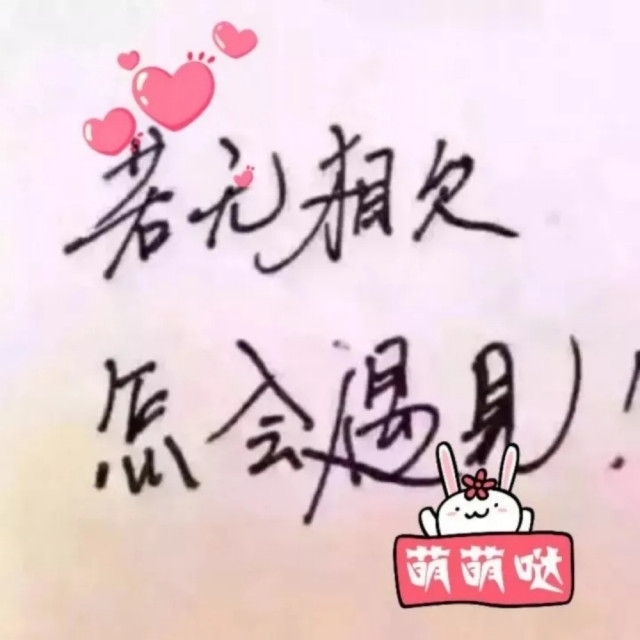 若无相欠
怎会遇见！
萌萌哒